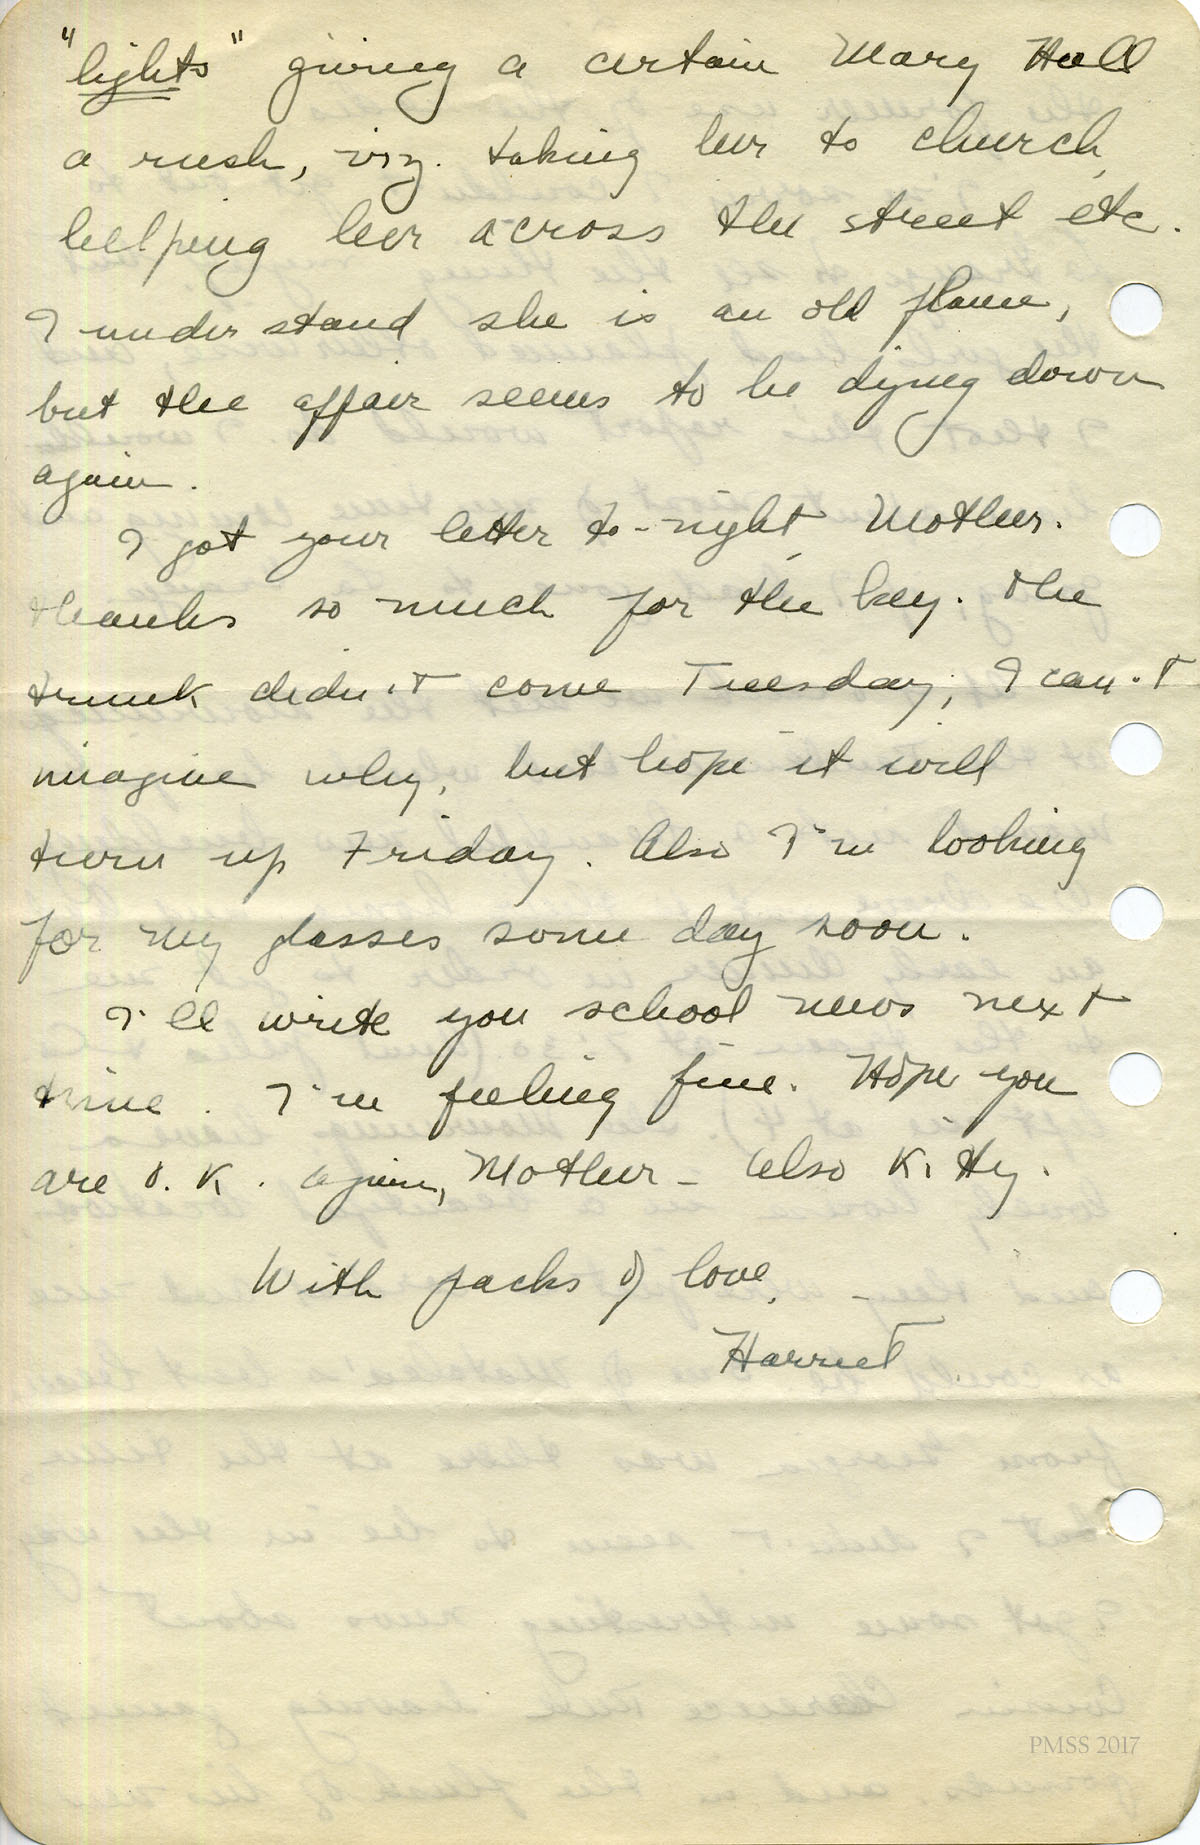 "lights" giving a certain Mary Hall
a rush, viz. taking her to church,
helping her across the street etc.
I understand she is an old flame,
but the affair seems to be dying down
again.
I got your letter to-night, Mother.
Thanks so much for the key. The
trunk didn't come Tuesday, I can't
imagine why, but hope it will
turn up Friday. Also I'm looking
for my glasses some day soon.
I'll write you school news next
time. I'm feeling fine. Hope you
are O.K. again, Mother - also Kitty.
With packs of love,
Harriet
PMSS 2017